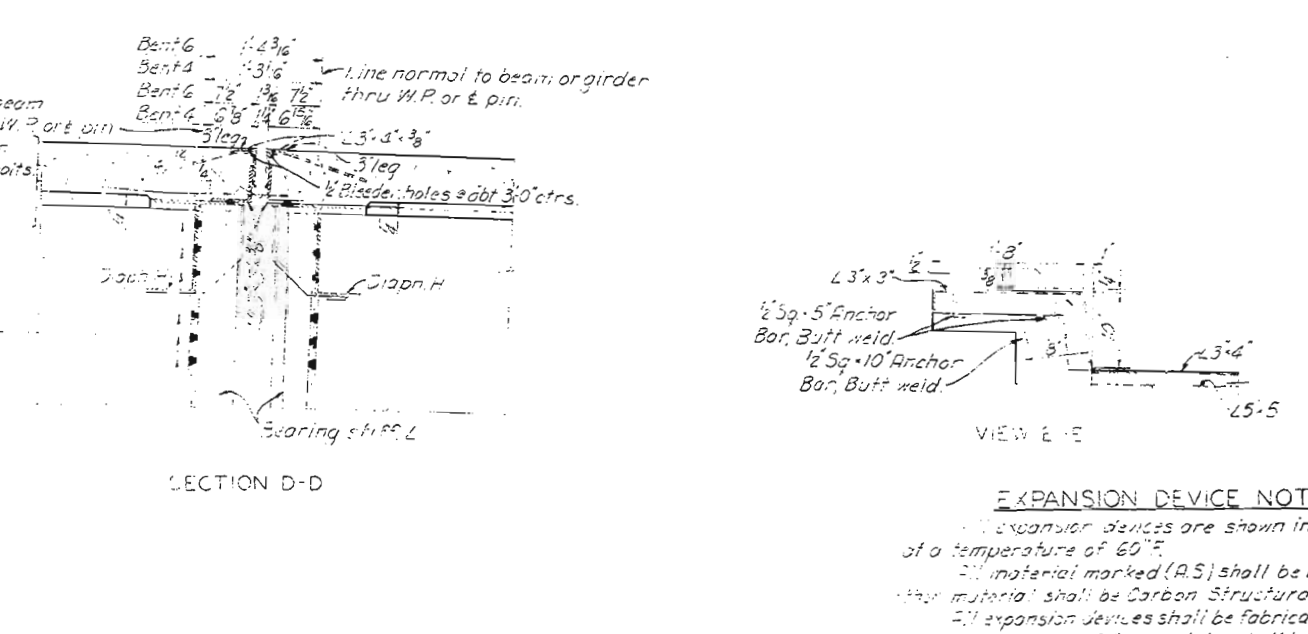 Bent 6 1'-4 3/16"
Bent 4 1'-3 1/16"
Bent 6 7 1/2" 1 3/16 7 1/2"
Bent 4 6 7/8" 1 1/4" 6 15/16"
Line normal to beam or girder
thru W.P. or ℄ pin.
beam
W.P. or ℄ pin
3" leg
L 3" x 4" x 3/8"
3" leg
1/2" Bleeder holes @ abt 3'-0" ctrs.
Diaph. H
Diaph. H
Bearing stiff. L
SECTION D-D
8"
1"
1/2"
5/8
L 3" x 3"
1/2" Sq. x 5" Anchor
Bar, Butt weld.
1/2" Sq x 10" Anchor
Bar, Butt weld.
8"
L 3" x 4"
L 5 x 5
VIEW E-E
EXPANSION DEVICE NOT
All expansion devices are shown in
at a temperature of 60°F.
All material marked (A.S) shall be
other material shall be Carbon Structura
All expansion devices shall be fabrica